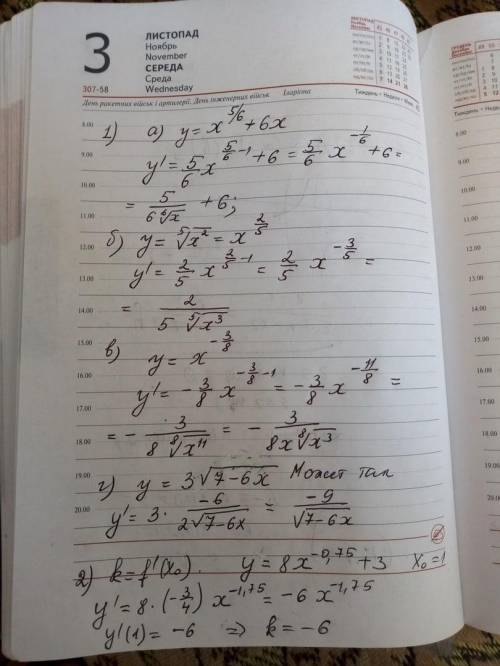 3
ЛИСТОПАД
Ноябрь
November
СЕРЕДА
Среда
Wednesday
307-58
День ракетних військ і артилерії. День інженерних військ
Тиждень • Неделя • Week
8.00
9.00
10.00
11.00
12.00
13.00
14.00
15.00
16.00
17.00
18.00
19.00
20.00
1) а) y = x^(5/6) + 6x
y' = 5/6 x^(5/6 - 1) + 6 = 5/6 x^(-1/6) + 6 =
= 5/(6 ⁶√x) + 6;
б) y = ⁵√x² = x^(2/5)
y' = 2/5 x^(2/5 - 1) = 2/5 x^(-3/5) =
= 2/(5 ⁵√x³)
в) y = x^(-3/8)
y' = -3/8 x^(-3/8 - 1) = -3/8 x^(-11/8) =
= - 3/(8 ⁸√x¹¹) = - 3/(8x ⁸√x³)
г) y = 3√(7-6x) Может так
y' = 3 · -6/(2√(7-6x)) = -9/√(7-6x)
2) k = f'(x₀). y = 8x^(-0,75) + 3 x₀ = 1
y' = 8 · (-3/4) x^(-1,75) = -6 x^(-1,75)
y'(1) = -6 ⇒ k = -6
8.00
9.00
10.00
11.00
12.00
13.00
14.00
15.00
16.00
17.00
18.00
19.00
20.00